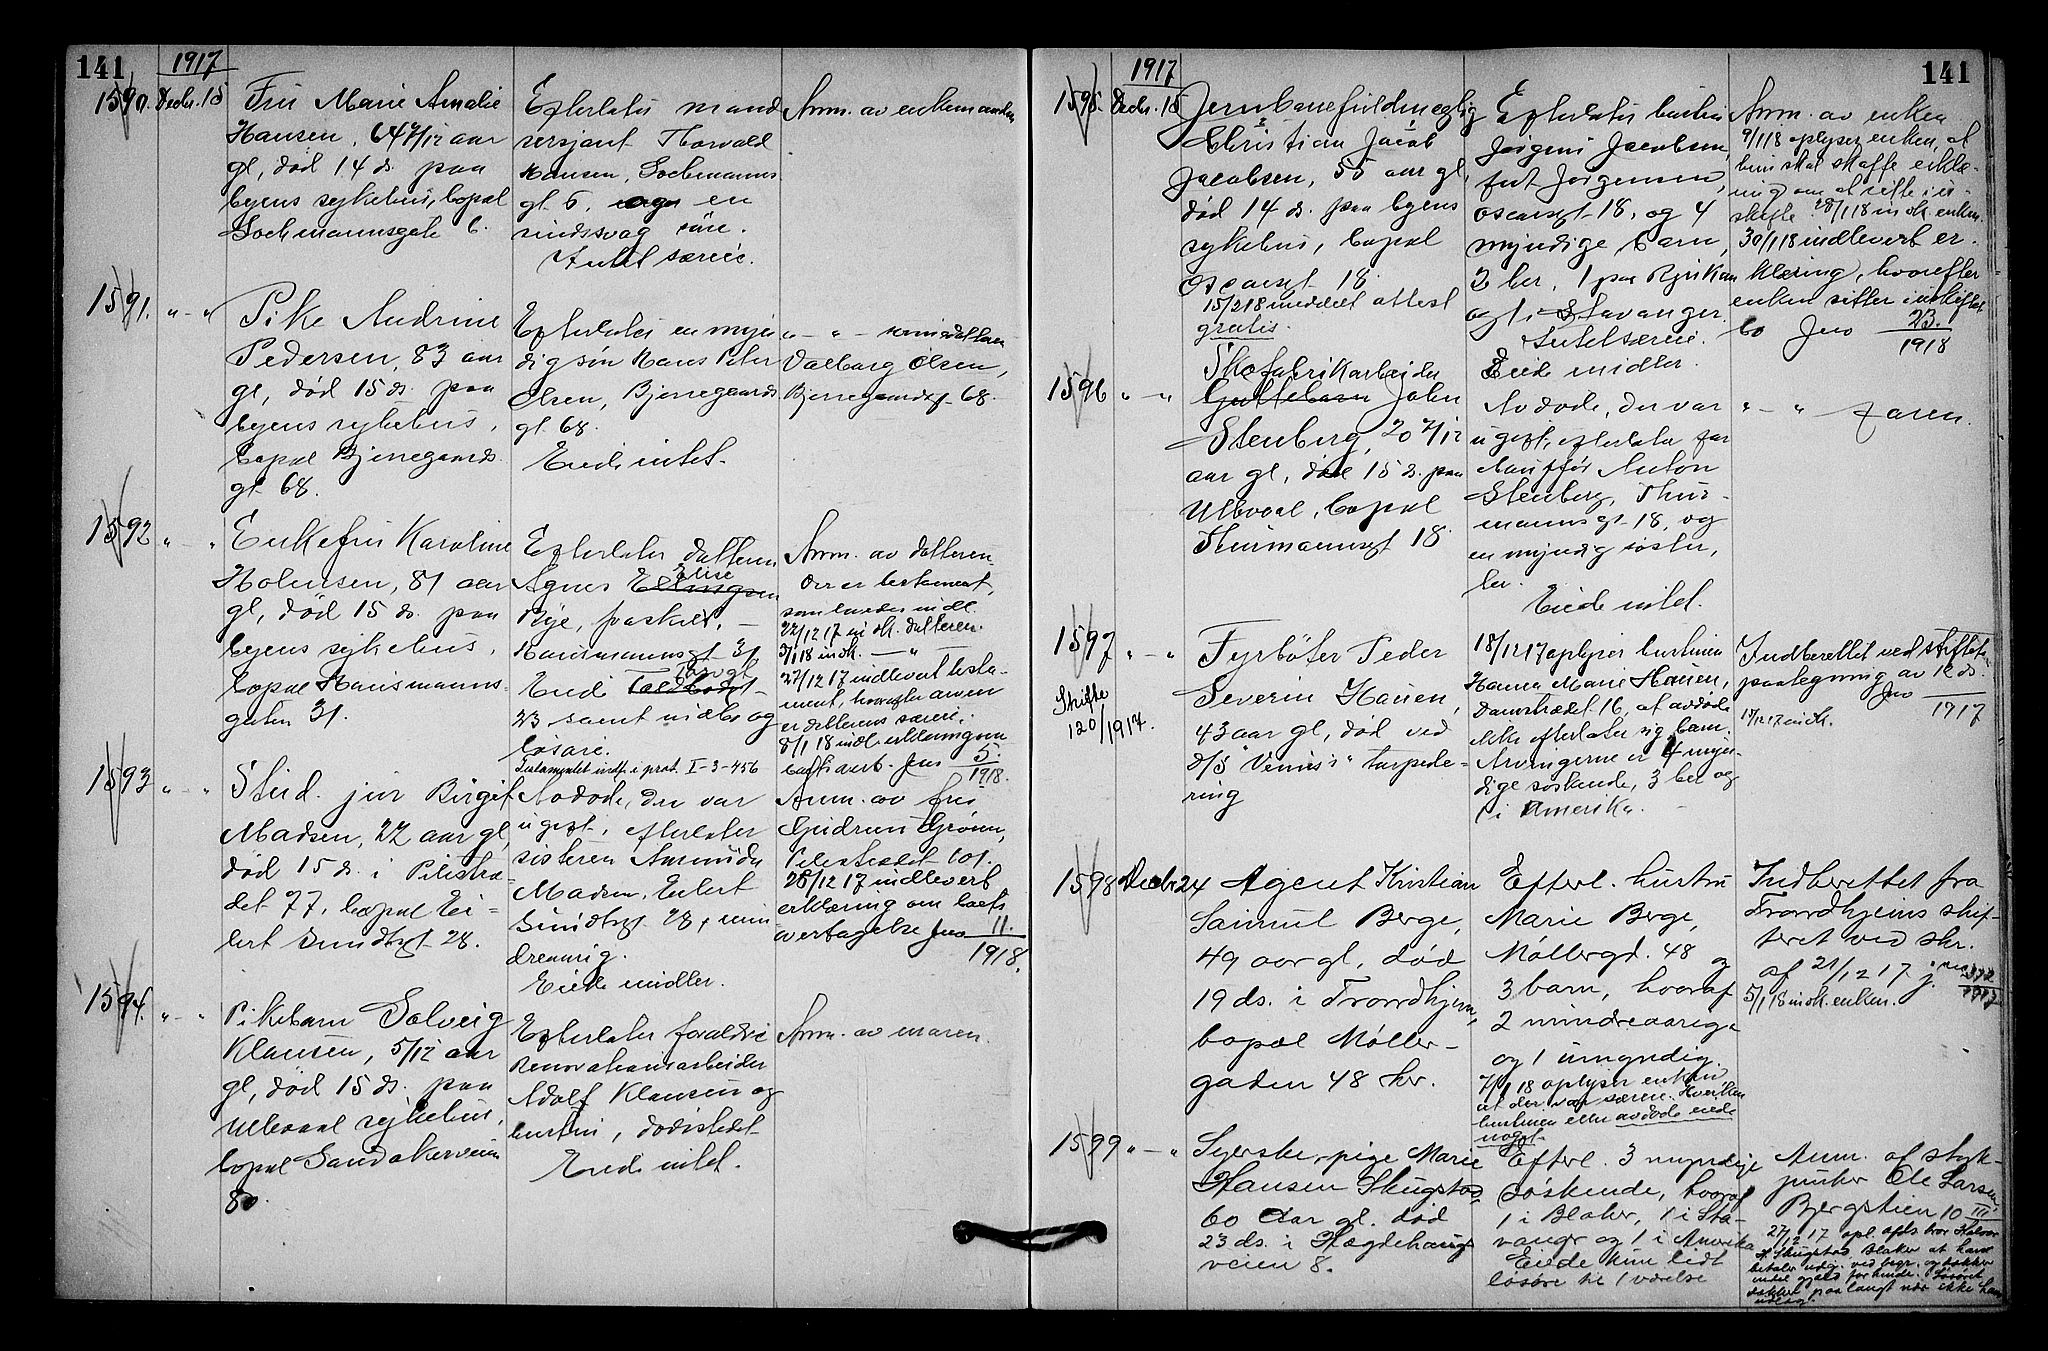 141
1917
1590. Decbr. 15
Fru Marie Amalie
Hansen, 64 7/12 aar
gl, død 14 ds. paa
byens sykehus, bopæl
Lochmannsgate 6.
Efterlater mand
versjant Thorvald
Hansen, Lochmanns
gt 6, en
sindssvag søn.
Intet særeie.
Anm. av enkemanden
1591. " - "
Pike Andrine
Pedersen, 83 aar
gl, død 15 ds. paa
byens sykehus,
bopæl Bjerregaards
gt 68.
Efterlater en myn
dig søn Hans Peter
Olsen, Bjerregaards
gt 68.
Eiede intet.
" - " - sønnedatteren
Valborg Olsen,
Bjerregaardsgt 68.
1592 " - "
Enkefru Karoline
Holensen, 81 aar
gl, død 15 ds. paa
byens sykehus,
bopæl Hausmanns-
gaten 31.
Efterlater datteren
Agnes Elise
Rye, fraskilt, -
Hausmannsgt 31
Eiede
23 samt midler og
løsøre.
Testamentet indf. i prot. I-3-456
Anm. av datteren.
Der er testament,
som bædes indl.
22/12 17 indk. datteren.
3/1 18 indk. — " —
27/12 17 indlevert testa-
ment, hvorefter arven
er datterens særeie.
8/1 18 indl. erklæring om
boets overt. Jno 5/1918.
1593 " - "
Stud. jur Birgit
Madsen, 22 aar gl,
død 15 ds. i Pilestræ-
det 77, bopæl Ei-
lert Sundtsgt 28.
Avdøde, der var
ugift, efterlater
søsteren Asmunda
Madsen, Eilert
Sundtsgt 28, min
dreaarig.
Eiede midler.
Anm. av frk
Gudrun Grønn,
Pilestrædet 101.
28/12 17 indlevert
erklæring om boets
overtagelse Jno 11./1918.
1594. " - "
Pikebarn Solveig
Klausen, 5/12 aar
gl, død 15 ds. paa
Ullevaal sykehus,
bopæl Sandakerveien
80
Efterlater forældre
Renovationsarbeider
Adolf Klausen og
hustru, dødsstedet
Eiede intet.
Anm. av moren.
141
1917
1595. Decbr. 15
Jernbanefuldmægtig
Christian Jacob
Jacobsen, 55 aar gl,
død 14 ds. paa byens
sykehus, bopæl
Oscarsgt 18.
15/2 18 meddelt attest
gratis.
Efterlater hustru
Jørgine Jacobsen,
født Jørgensen,
Oscarsgt 18, og 4
myndige barn,
2 her, 1 paa Rjukan
og 1 i Stavanger.
Intet særeie.
Eiede midler.
Anm. av enken
9/1 18 oplyser enken, at
hun skal skaffe erklæ-
ring om at sitte i u-
skifte. 28/1 18 indk. enken.
30/1 18 indlevert er-
klæring, hvorefter
enken sitter i uskiftet
bo Jno 23./1918
1596 " - "
Skofabrikarbeider
Guttebarn John
Stenberg, 20 7/12
aar gl, død 15 ds. paa
Ullevaal, bopæl
Thurmannsgt 18.
Avdøde, der var
ugift, efterlater far
chauffør Anton
Stenberg, Thur-
mannsgt 18, og
en myndig søster,
her.
Eiede intet.
" - " faren.
1597 " - "
Skifte
120/1917.
Fyrbøter Peder
Severin Hauen,
43 aar gl, død ved
D/S "Venus"s torpede-
ring
18/12 17 oplyser hustruen
Hanna Marie Hauen,
Damstrædet 16, at avdøde
ikke efterlater sig barn.
Arvingerne er 4 myn-
dige søskende, 3 her og
1 i Amerika.
Indberettet ved skiftets
paategning av 12 ds.
Jno /1917
18/12 17 indk.
1598 Decbr 24
Agent Kristian
Samuel Berge,
49 aar gl, død
19 ds. i Trondhjem,
bopæl Møller-
gaden 48 hr.
Efterl. hustru
Marie Berge,
Møllergd. 48 og
3 barn, hvoraf
2 mindreaarige
og 1 umyndig.
7/1 18 oplyser enken
at der var særeie. Hverken
hustruen eller avdøde eiede
noget.
Indberettet fra
Trondhjems skif-
teret ved skr.
af 21/12 17 j. no /1917
5/1 18 indk. enken.
1599 " - "
Syerske, pige Marie
Hansen Skugstad,
60 aar gl. død
23 ds. i Hægdehaugs
veien 8.
Efterl. 3 myndige
søskende, hvoraf
1 i Blaker, 1 i Sta-
vanger og 1 i Amerika
Eiede kun lidt
løsøre til 1 værelse
Anm. af styk-
junker Ole Larsen,
Bergstien 10 III
27/12 17 opl. afds bror Halvor
H. Skugstad Blaker at han
betaler udg. ved begr. og dækker
intet gjæld for hende. Løsøret
dækker paa langt nær ikke hans
udlæg.